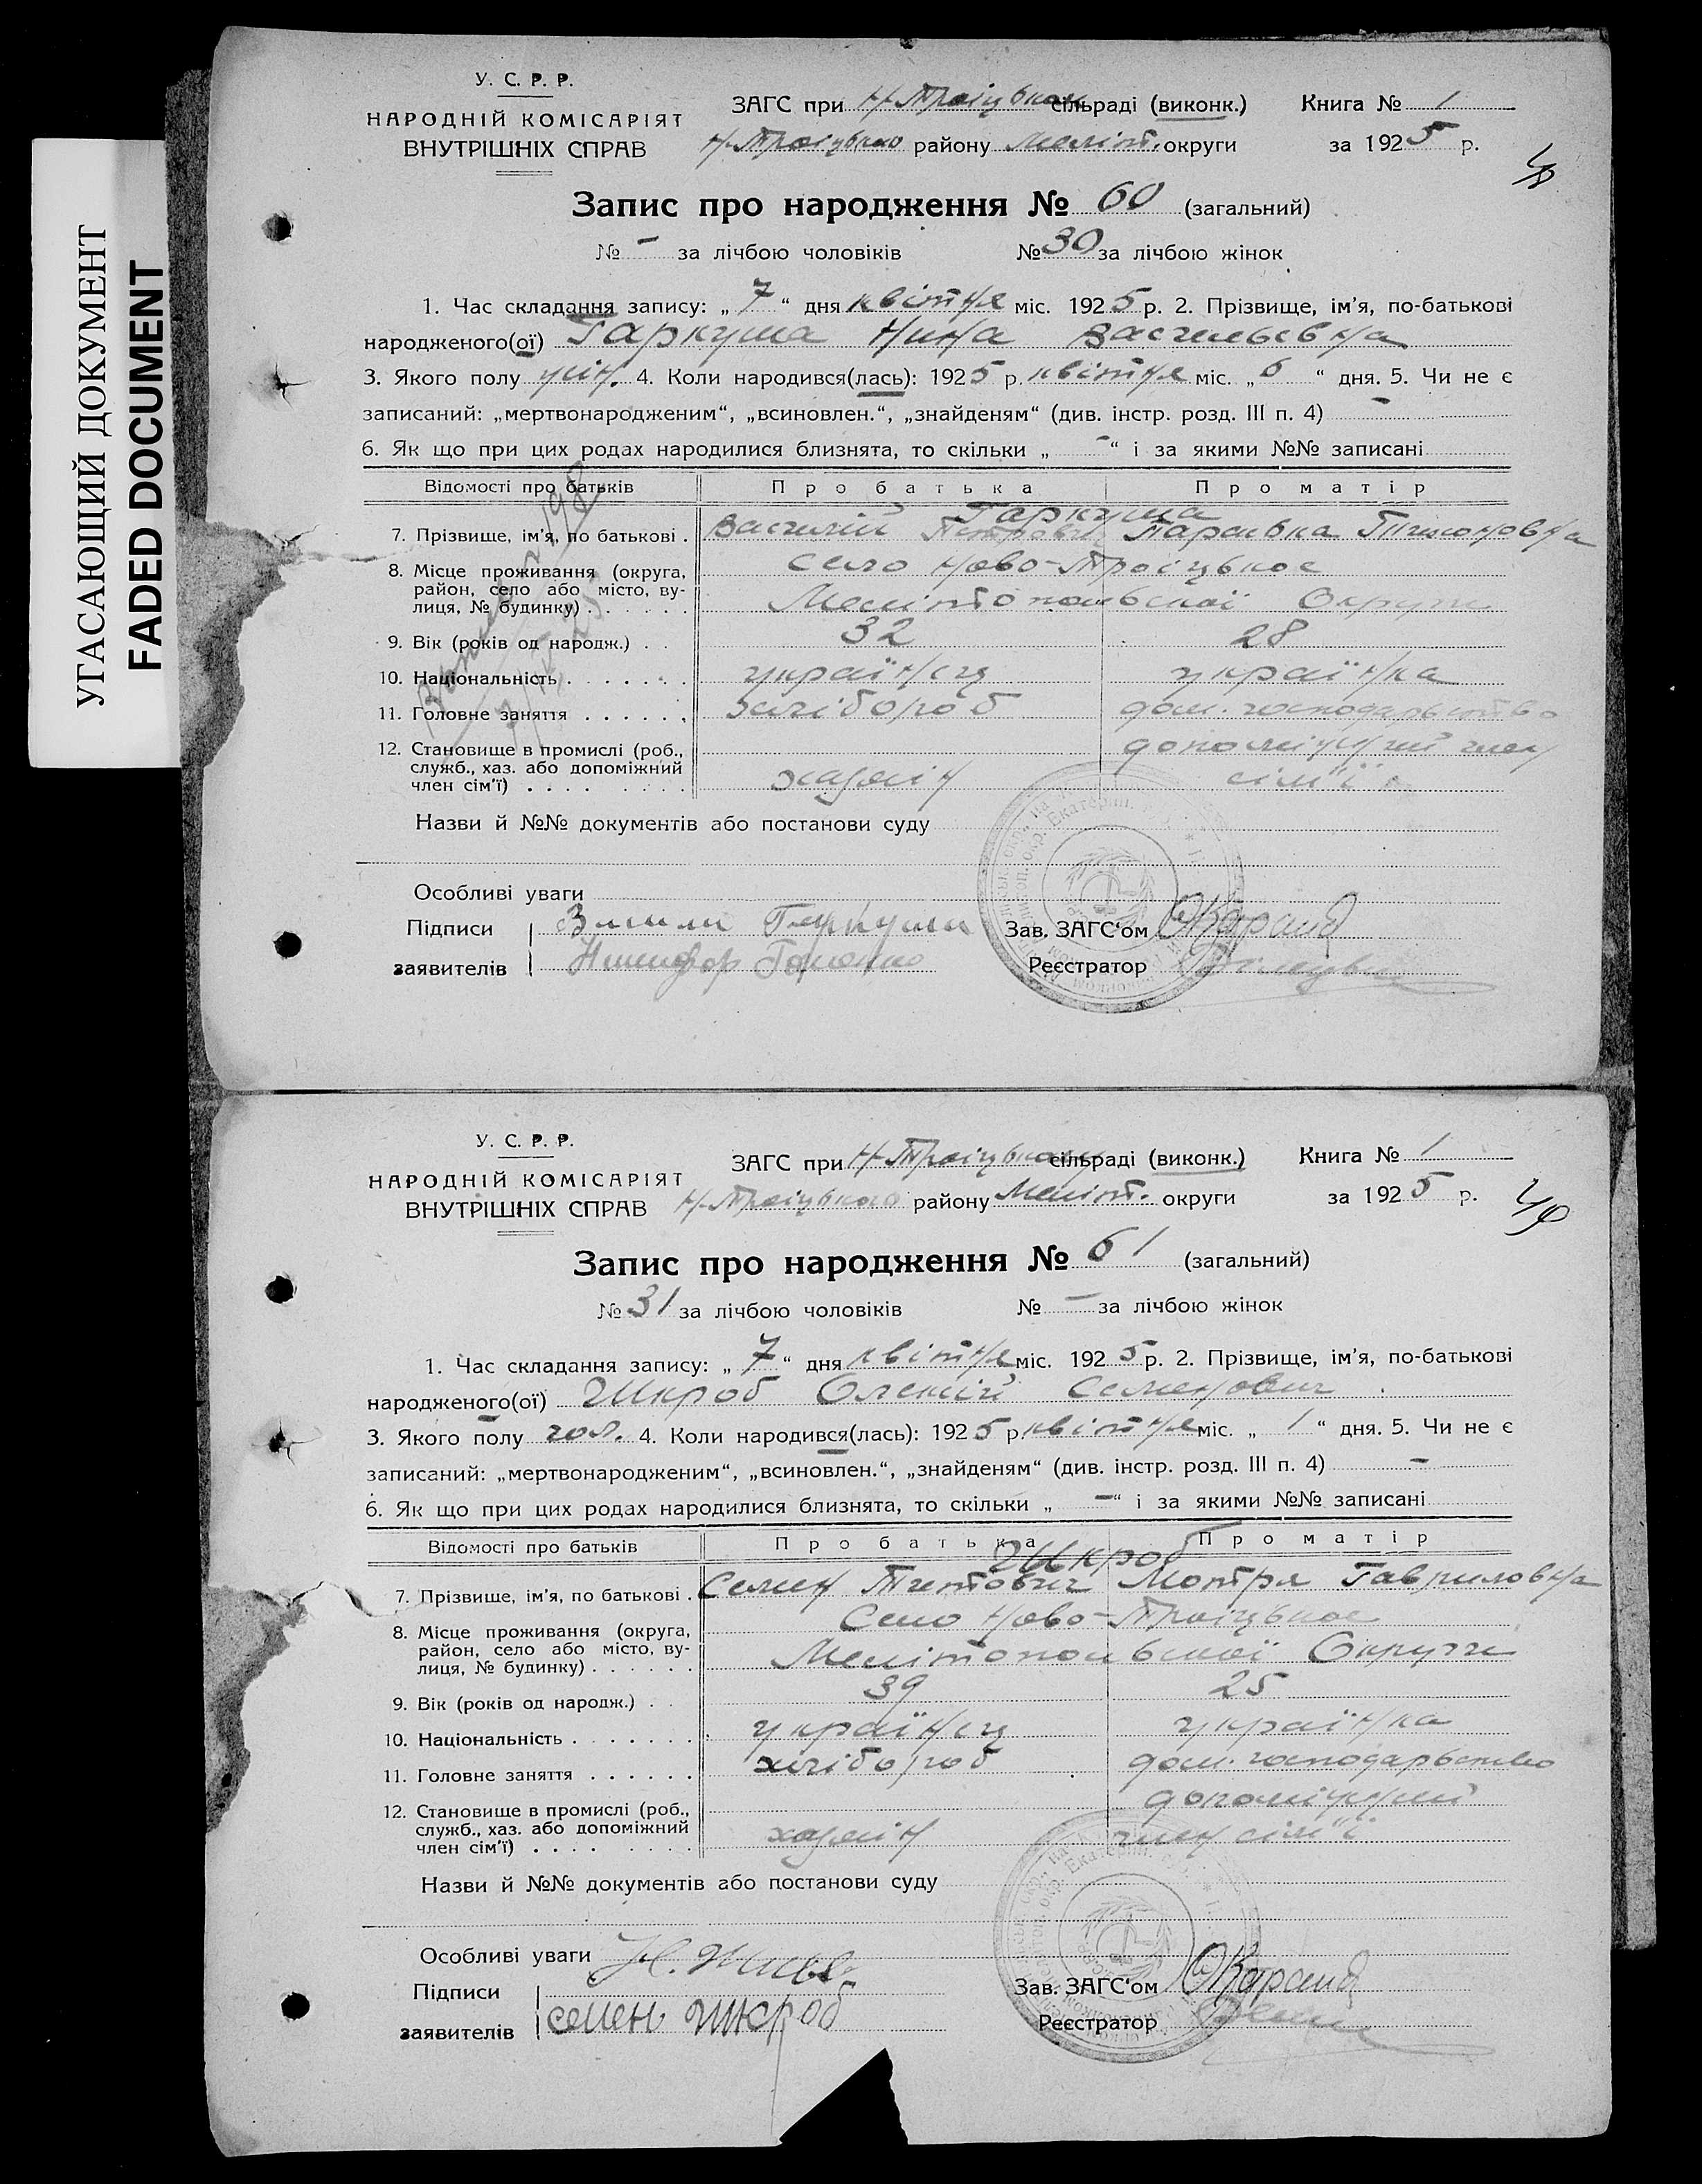 УГАСАЮЩИЙ ДОКУМЕНТ
FADED DOCUMENT
У. С. Р. Р.
НАРОДНІЙ КОМІСАРІЯТ
ВНУТРІШНІХ СПРАВ
ЗАГС при Н-Троіцьком сільраді (виконк.) Книга № 1
Н-Троіцького району Меліт. округи за 1925 р.
Запис про народження № 60 (загальний)
№ - за лічбою чоловіків № 30 за лічбою жінок
1. Час складання запису: „ 7 “ дня квітня міс. 1925 р. 2. Прізвище, ім’я, по-батькові
народженого(ої) Гаркуша Нина Васильевна
3. Якого полу жін. 4. Коли народився(лась): 1925 р. квітня міс. „ 6 “ дня. 5. Чи не є
записаний: „мертвонародженим“, „всиновлен.“, „знайденям“ (див. інстр. розд. III п. 4) -
6. Як що при цих родах народилися близнята, то скільки „ - “ і за якими №№ записані
Відомості про батьків Про батька Про матір
Гаркуша
7. Прізвище, ім’я, по батькові . Василій Петрович Параська Тимоновна
8. Місце проживання (округа, Село Ново-Троіцькое
район, село або місто, ву- Мелітопольської Округи
лиця, № будинку) . . . . . .
9. Вік (років од народж.) . . 32 28
10. Національність . . . . . . . українец українка
11. Головне заняття . . . . . . хлібороб дом. господарьство
12. Становище в промислі (роб., допоміжний член
служб., хаз. або допоміжний хазяін сім"ї
член сім’ї) . . . . . . . .
Назви й №№ документів або постанови суду
Особливі уваги
Підписи Гаркуша Зав. ЗАГС‘ом
заявителів Никифор Реєстратор
У. С. Р. Р.
НАРОДНІЙ КОМІСАРІЯТ
ВНУТРІШНІХ СПРАВ
ЗАГС при Н-Троіцьком сільраді (виконк.) Книга № 1
Н-Троіцького району Меліт. округи за 1925 р.
49
Запис про народження № 61 (загальний)
№ 31 за лічбою чоловіків № - за лічбою жінок
1. Час складання запису: „ 7 “ дня квітня міс. 1925 р. 2. Прізвище, ім’я, по-батькові
народженого(ої) Шкроб Олексій Семенович
3. Якого полу чол. 4. Коли народився(лась): 1925 р. квітня міс. „ 1 “ дня. 5. Чи не є
записаний: „мертвонародженим“, „всиновлен.“, „знайденям“ (див. інстр. розд. III п. 4) -
6. Як що при цих родах народилися близнята, то скільки „ - “ і за якими №№ записані
Відомості про батьків Про батька Про матір
Шкроб
7. Прізвище, ім’я, по батькові . Семен Титович Мотря Гавриловна
8. Місце проживання (округа, Село Ново-Троіцькое
район, село або місто, ву- Мелітопольської Округи
лиця, № будинку) . . . . . .
9. Вік (років од народж.) . . 39 25
10. Національність . . . . . . . українец українка
11. Головне заняття . . . . . . хлібороб дом. господарьство
12. Становище в промислі (роб., допоміжний
служб., хаз. або допоміжний хазяін член сім"ї
член сім’ї) . . . . . . . .
Назви й №№ документів або постанови суду
Особливі уваги
Підписи Зав. ЗАГС‘ом
заявителів семен шкроб Реєстратор